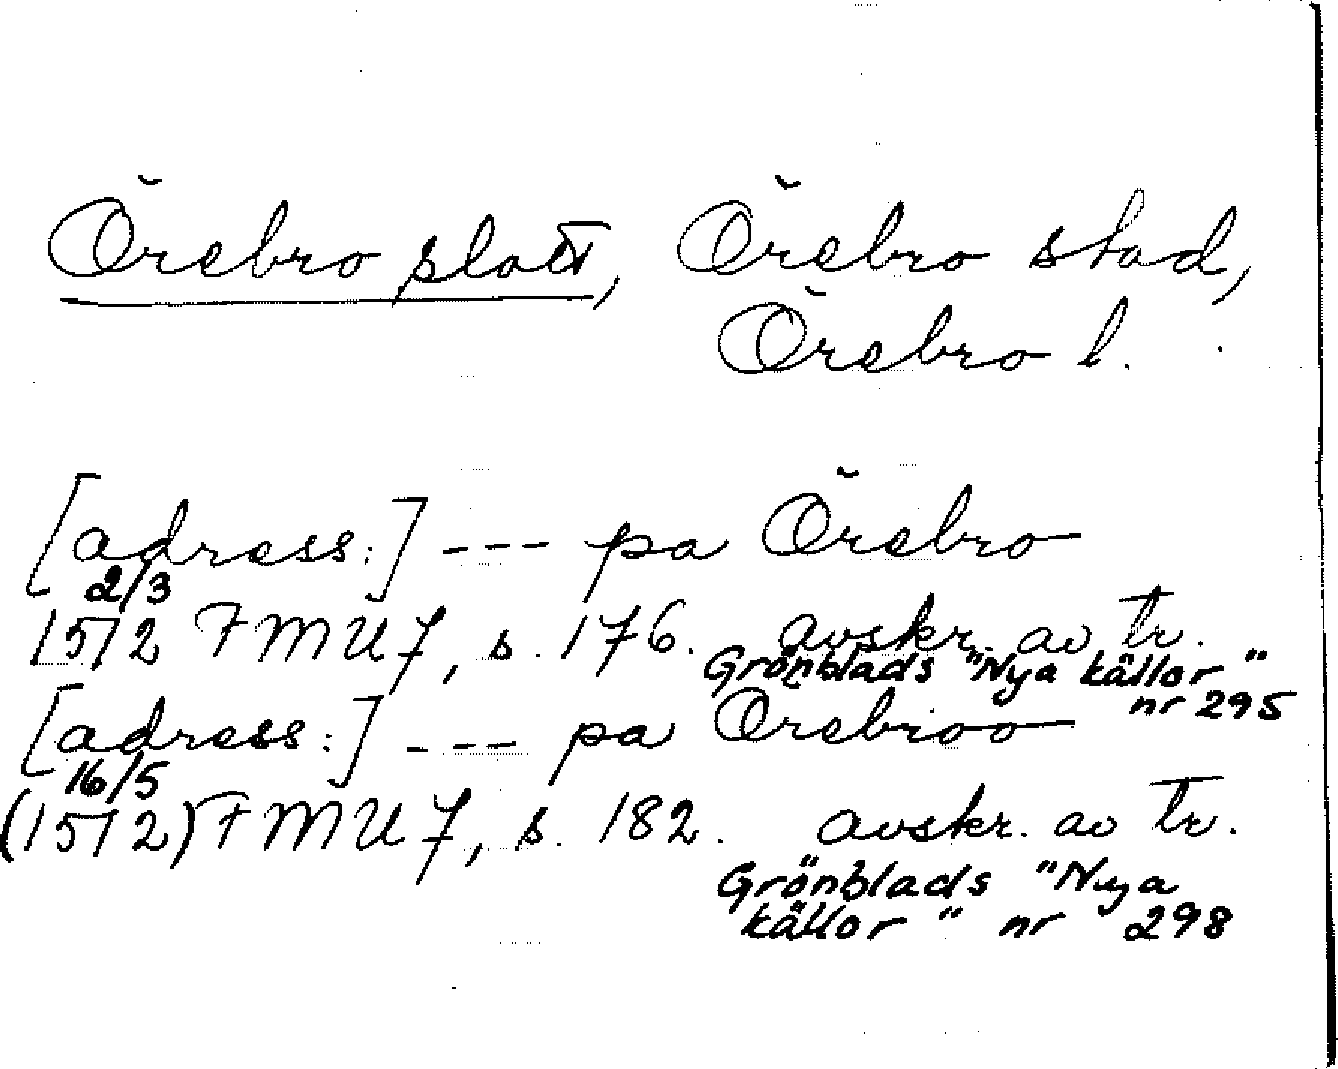 Örebro slott, Örebro stad,
Örebro l.
[adress:] --- pa Örebro
2/3
1572 FMU 7, s. 176. avskr. av tr.
Grönblads "Nya källor"
nr 295
[adress:] --- pa Orebroo
16/5
(1572) FMU 7, s. 182. avskr. av tr.
Grönblads "Nya
källor" nr 298